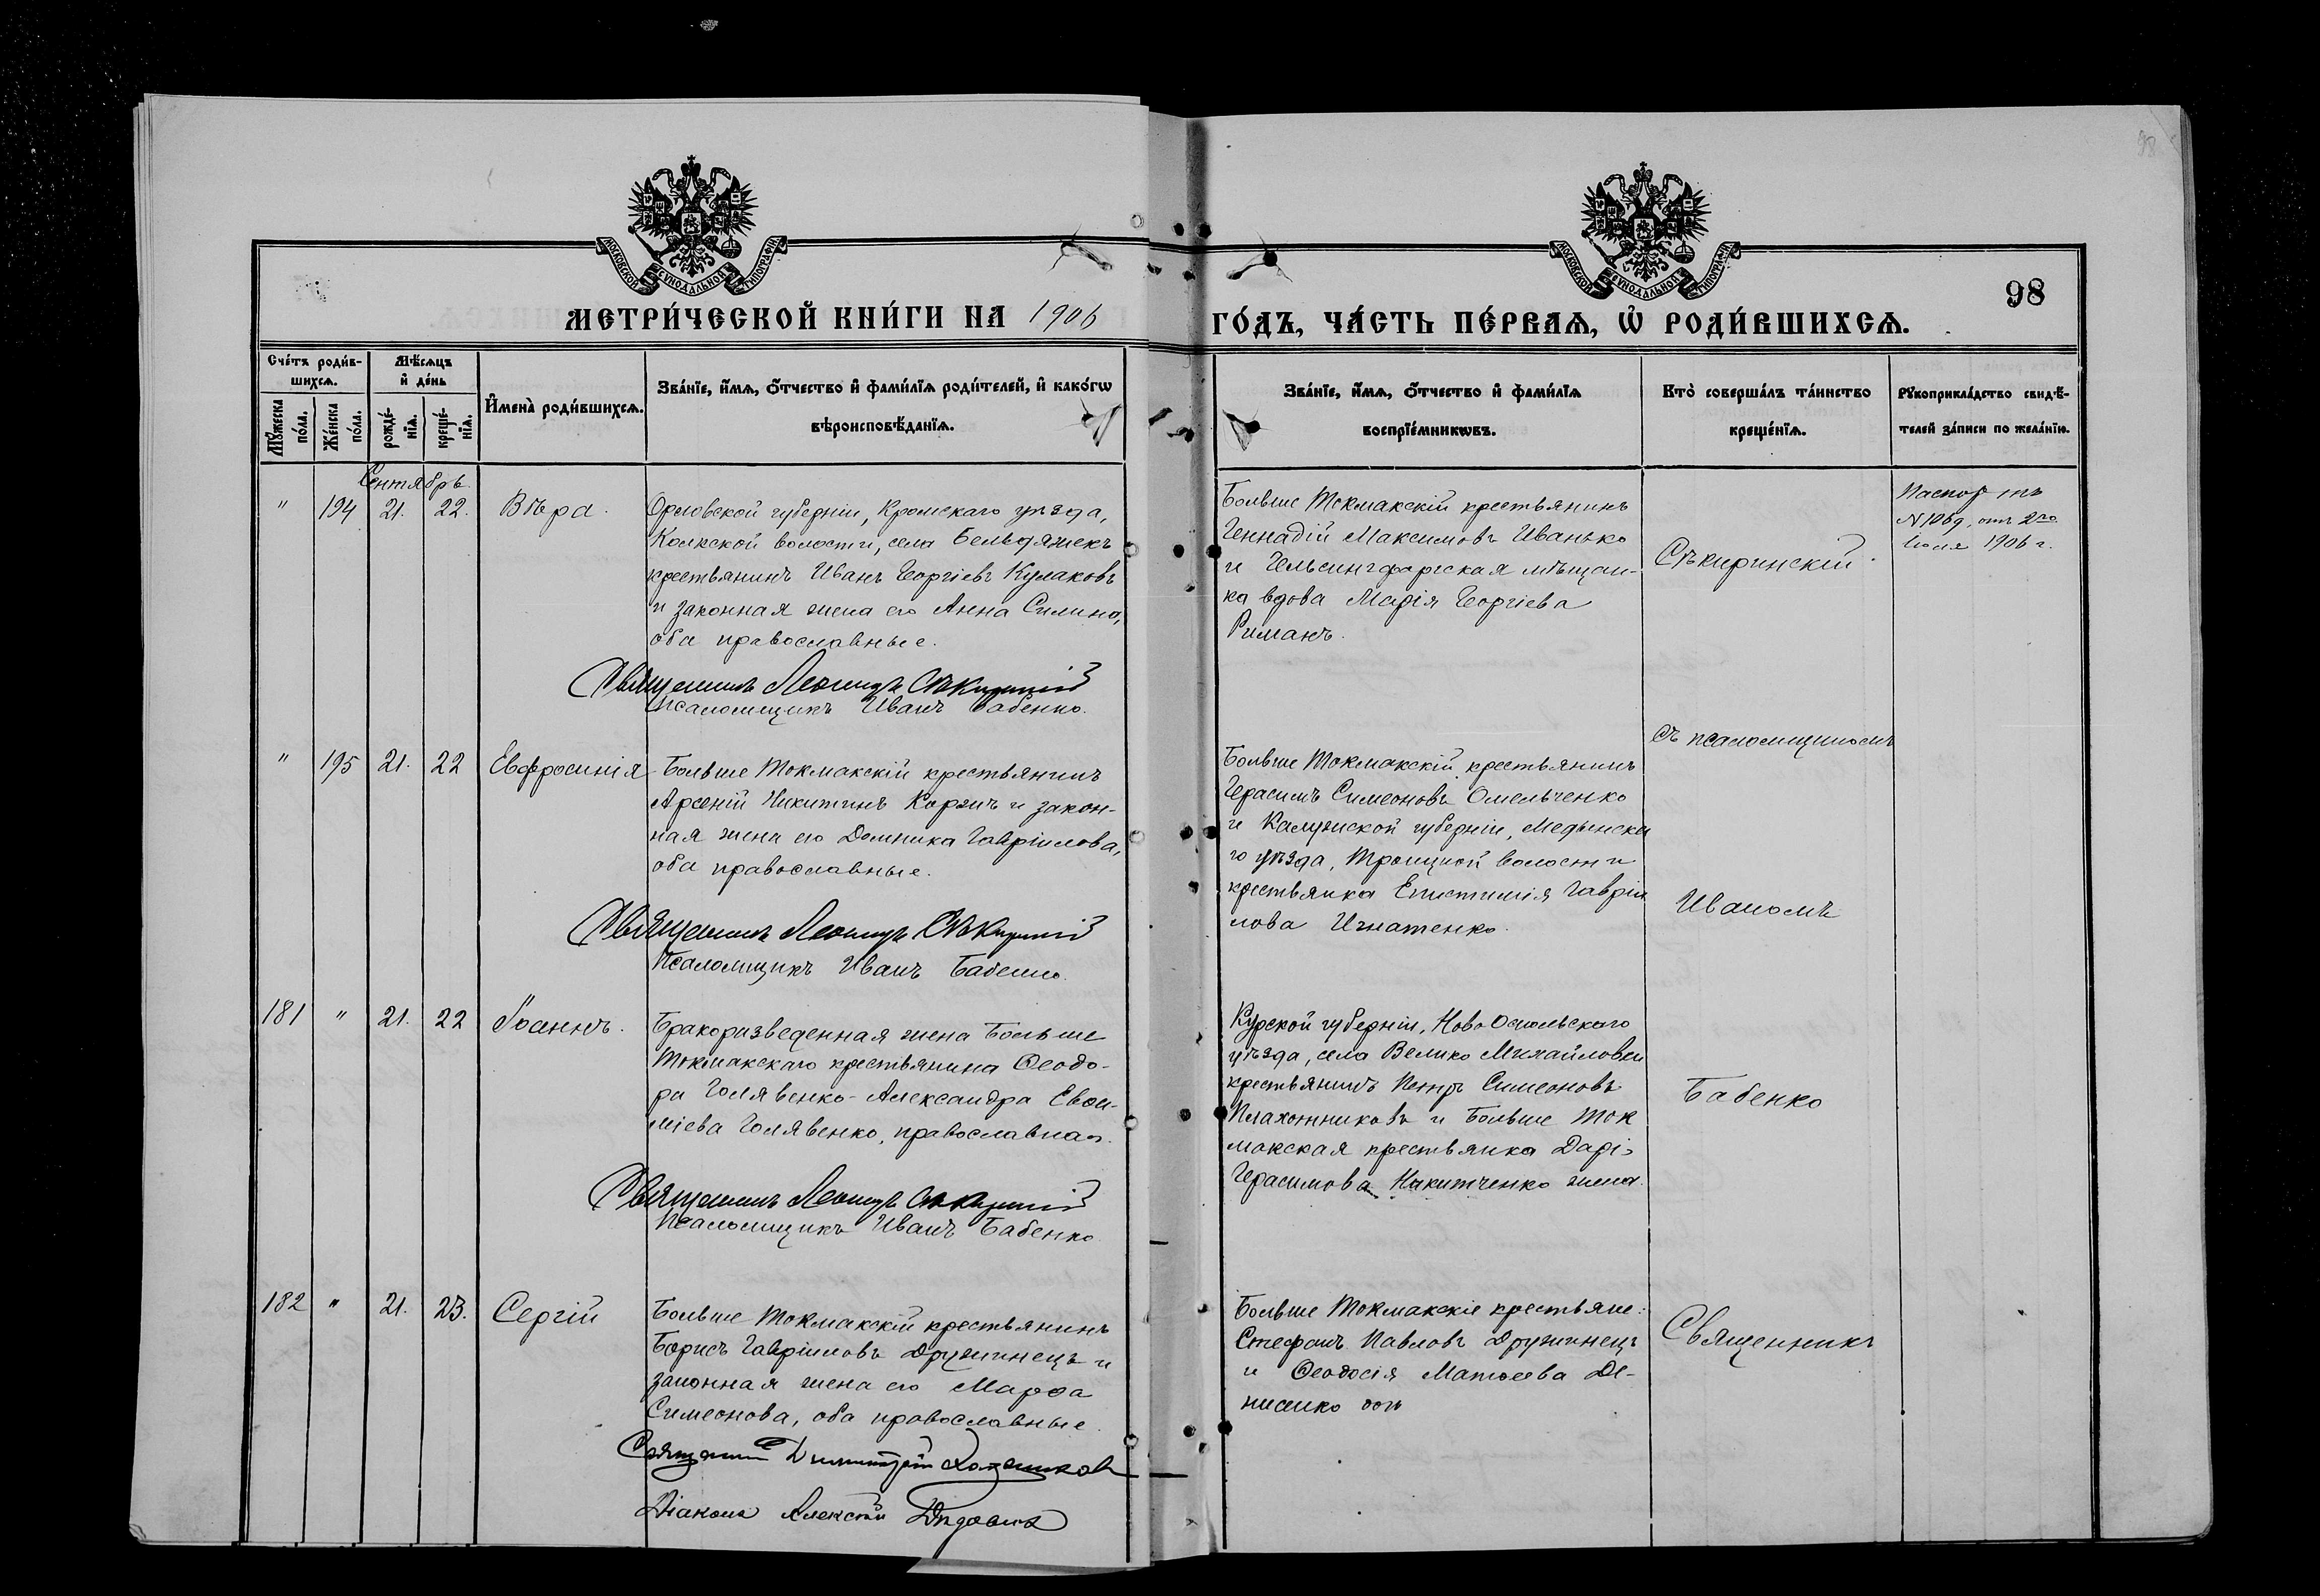 98
МОСКОВСКОЙ СѴНОДАЛЬНОЙ ТИПОГРАФІИ
МОСКОВСКОЙ СѴНОДАЛЬНОЙ ТИПОГРАФІИ
98
МЕТРИ́ЧЕСКОЙ КНИ́ГИ НА 1906
ГО́ДЪ, ЧА́СТЬ ПЕ́РВАѦ, Ѡ҆ РОДИ́ВШИХСѦ.
Сче́тъ роди́в-
шихсѧ.
Мѣ́сѧцъ
и҆ де́нь
Мꙋ́жеска по́ла.
Же́нска по́ла.
рожде́-нїѧ.
креще́-нїѧ.
И҆мена̀ роди́вшихсѧ.
Зва́нїе, и҆́мѧ, ѻ҆́тчество и҆ фами́лїѧ роди́телей, и҆ како́гѡ
вѣроисповѣ́данїѧ.
Зва́нїе, и҆́мѧ, ѻ҆́тчество и҆ фами́лїѧ
воспрїе́мникѡвъ.
Кто̀ соверша́лъ та́инство
креще́нїѧ.
Рꙋкоприкла́дство свидѣ́-
телей за́писи по жела́нїю.
Сентябрь.
" 194 21. 22. Вѣра.
Орловской губерніи, Кромскаго уѣзда,
волости, села Бельдяжекъ
крестьянинъ Иванъ Георгіевъ Кулаковъ
и законная жена его Анна Силина,
оба православные.
Священникъ Леонидъ Сѣкиринскій
Псаломщикъ Иванъ Бабенко.
Больше Токмакскій крестьянинъ
Геннадій Максимовъ Иванько
и Гельсингфоргская мѣщан-
ка вдова Марія Георгіева
Риманъ.
Сѣкиринскій.
Паспортъ
от 2го
Іюля 1906 г.
съ псаломщикомъ
" 195 21. 22 Евфросинія
Больше Токмакскій крестьянинъ
Арсеній Никитинъ Коржъ и закон-
ная жена его Домника Гавріилова,
оба православные.
Священникъ Леонидъ Сѣкиринскій
Псаломщикъ Иванъ Бабенко.
Больше Токмакскій крестьянинъ
Герасимъ Симеоновъ Омельченко
и Калужской губерніи, Медынска
го уѣзда, Троицкой волости
крестьянка Епистимія Гаврiи
лова Игнатенко.
Иваномъ
181 " 21. 22 Іоаннъ.
Бракоразведенная жена Больше
Токмакскаго крестьянина Ѳеодо-
ра Голявенко - Александра Евѳи-
міева Голявенко, православная.
Священникъ Леонидъ Сѣкиринскій
Псаломщикъ Иванъ Бабенко
Курской губерніи, Ново Оскольскаго
уѣзда, села Велико Михайловки
крестьянинъ Петръ Симеоновъ
Плахотниковъ и Больше Ток
макская крестьянка
Герасимова Никитченко жена.
Бабенко
182 " 21. 23. Сергій
Больше Токмакскій крестьянинъ
Борисъ Гавріиловъ Дружинецъ и
законная жена его Марѳа
Симеонова, оба православные.
Священникъ Димитрій
Діаконъ Алексѣй
Больше Токмакскіе крестьяне:
Стефанъ Павловъ Дружинецъ
и Ѳеодосія Матѳеева Де-
нисенко
Священникъ